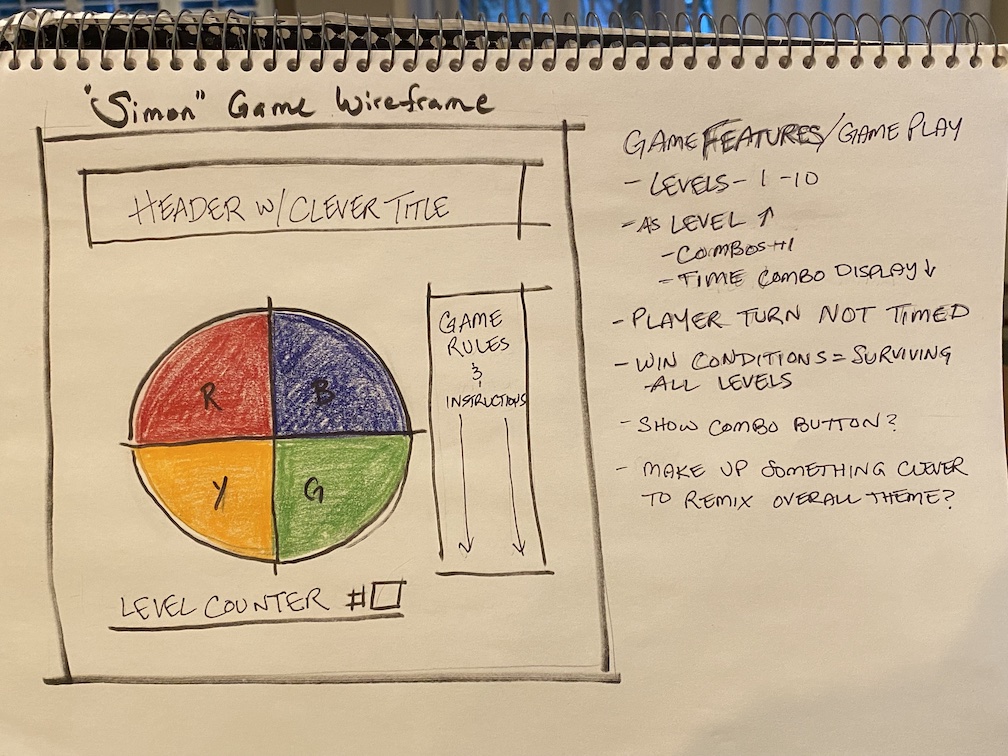 "Simon" Game Wireframe
HEADER W/ CLEVER TITLE
R
B
Y
G
GAME
RULES
&
INSTRUCTIONS
LEVEL COUNTER #
GAME FEATURES/GAME PLAY
- LEVELS - 1-10
- AS LEVEL ↑
- COMBOS +1
- TIME COMBO DISPLAY ↓
- PLAYER TURN NOT TIMED
- WIN CONDITIONS = SURVIVING
ALL LEVELS
- SHOW COMBO BUTTON?
- MAKE UP SOMETHING CLEVER
TO REMIX OVERALL THEME?